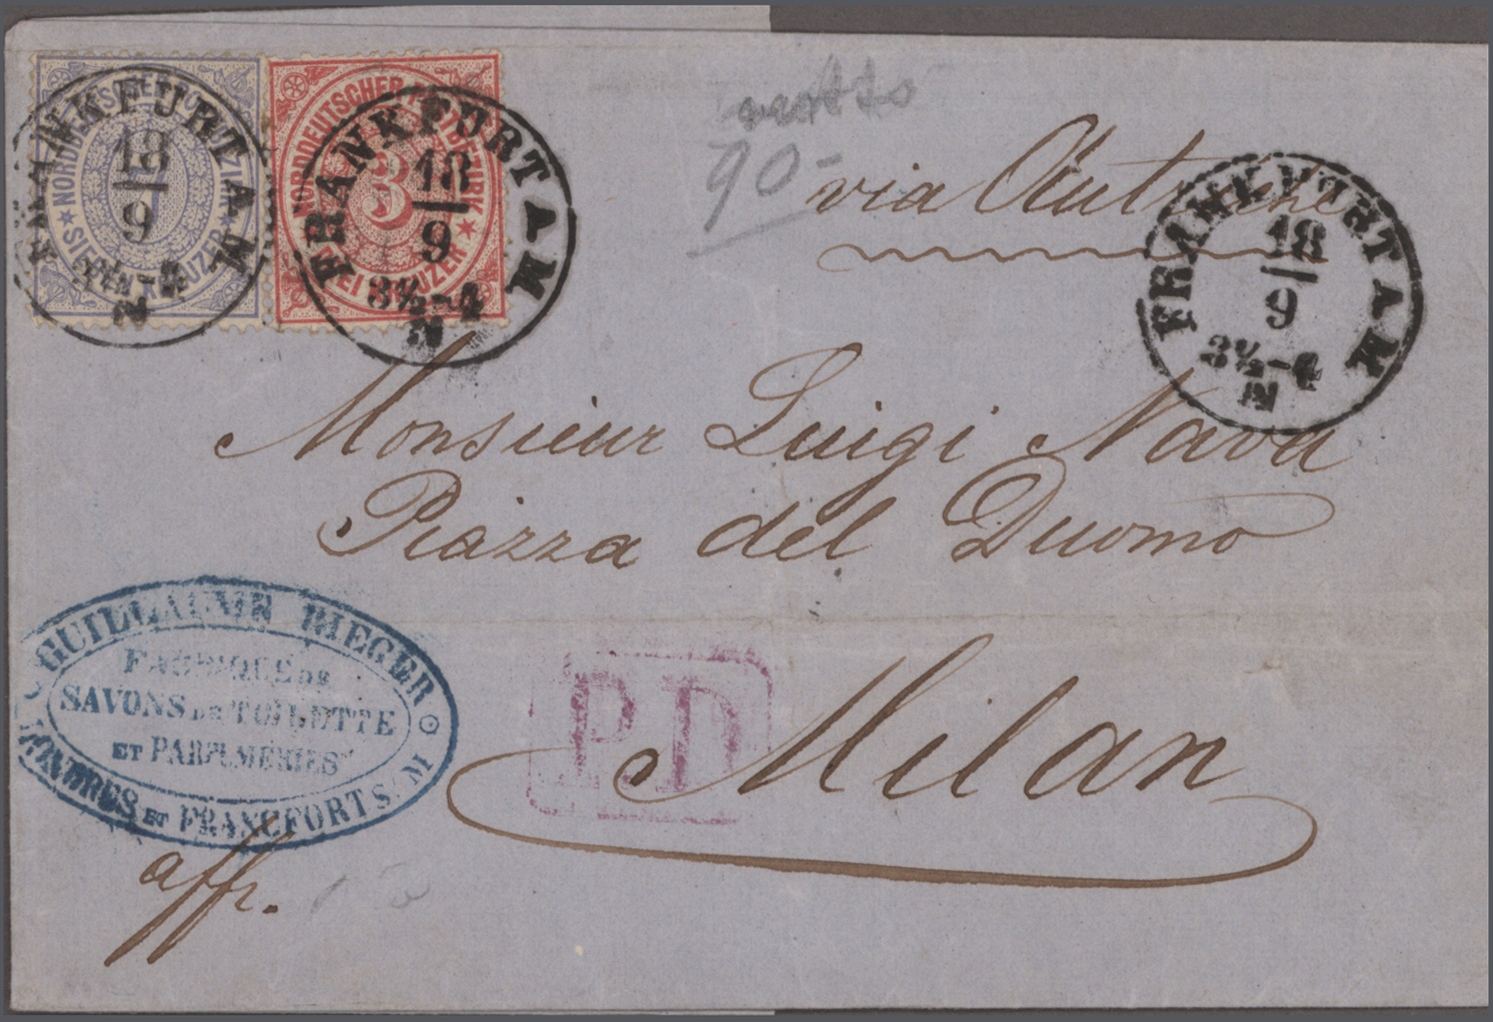 NORDDEUTSCHER POSTBEZIRK
3
DREI KREUZER
SIEBEN KREUZER
FRANKFURT A M
18
9
3½-4
N
FRANKFURT A M
18
9
3½-4
N
netto
90-
via Autriche
FRANKFURT A M
18
9
3½-4
N
Monsieur Luigi Nava
Piazza del Duomo
Milan
P.D
GUILLAUME RIEGER
FABRIQUE DE
SAVONS DE TOILETTE
ET PARFUMERIES
LONDRES ET FRANCFORT S/M
affr.